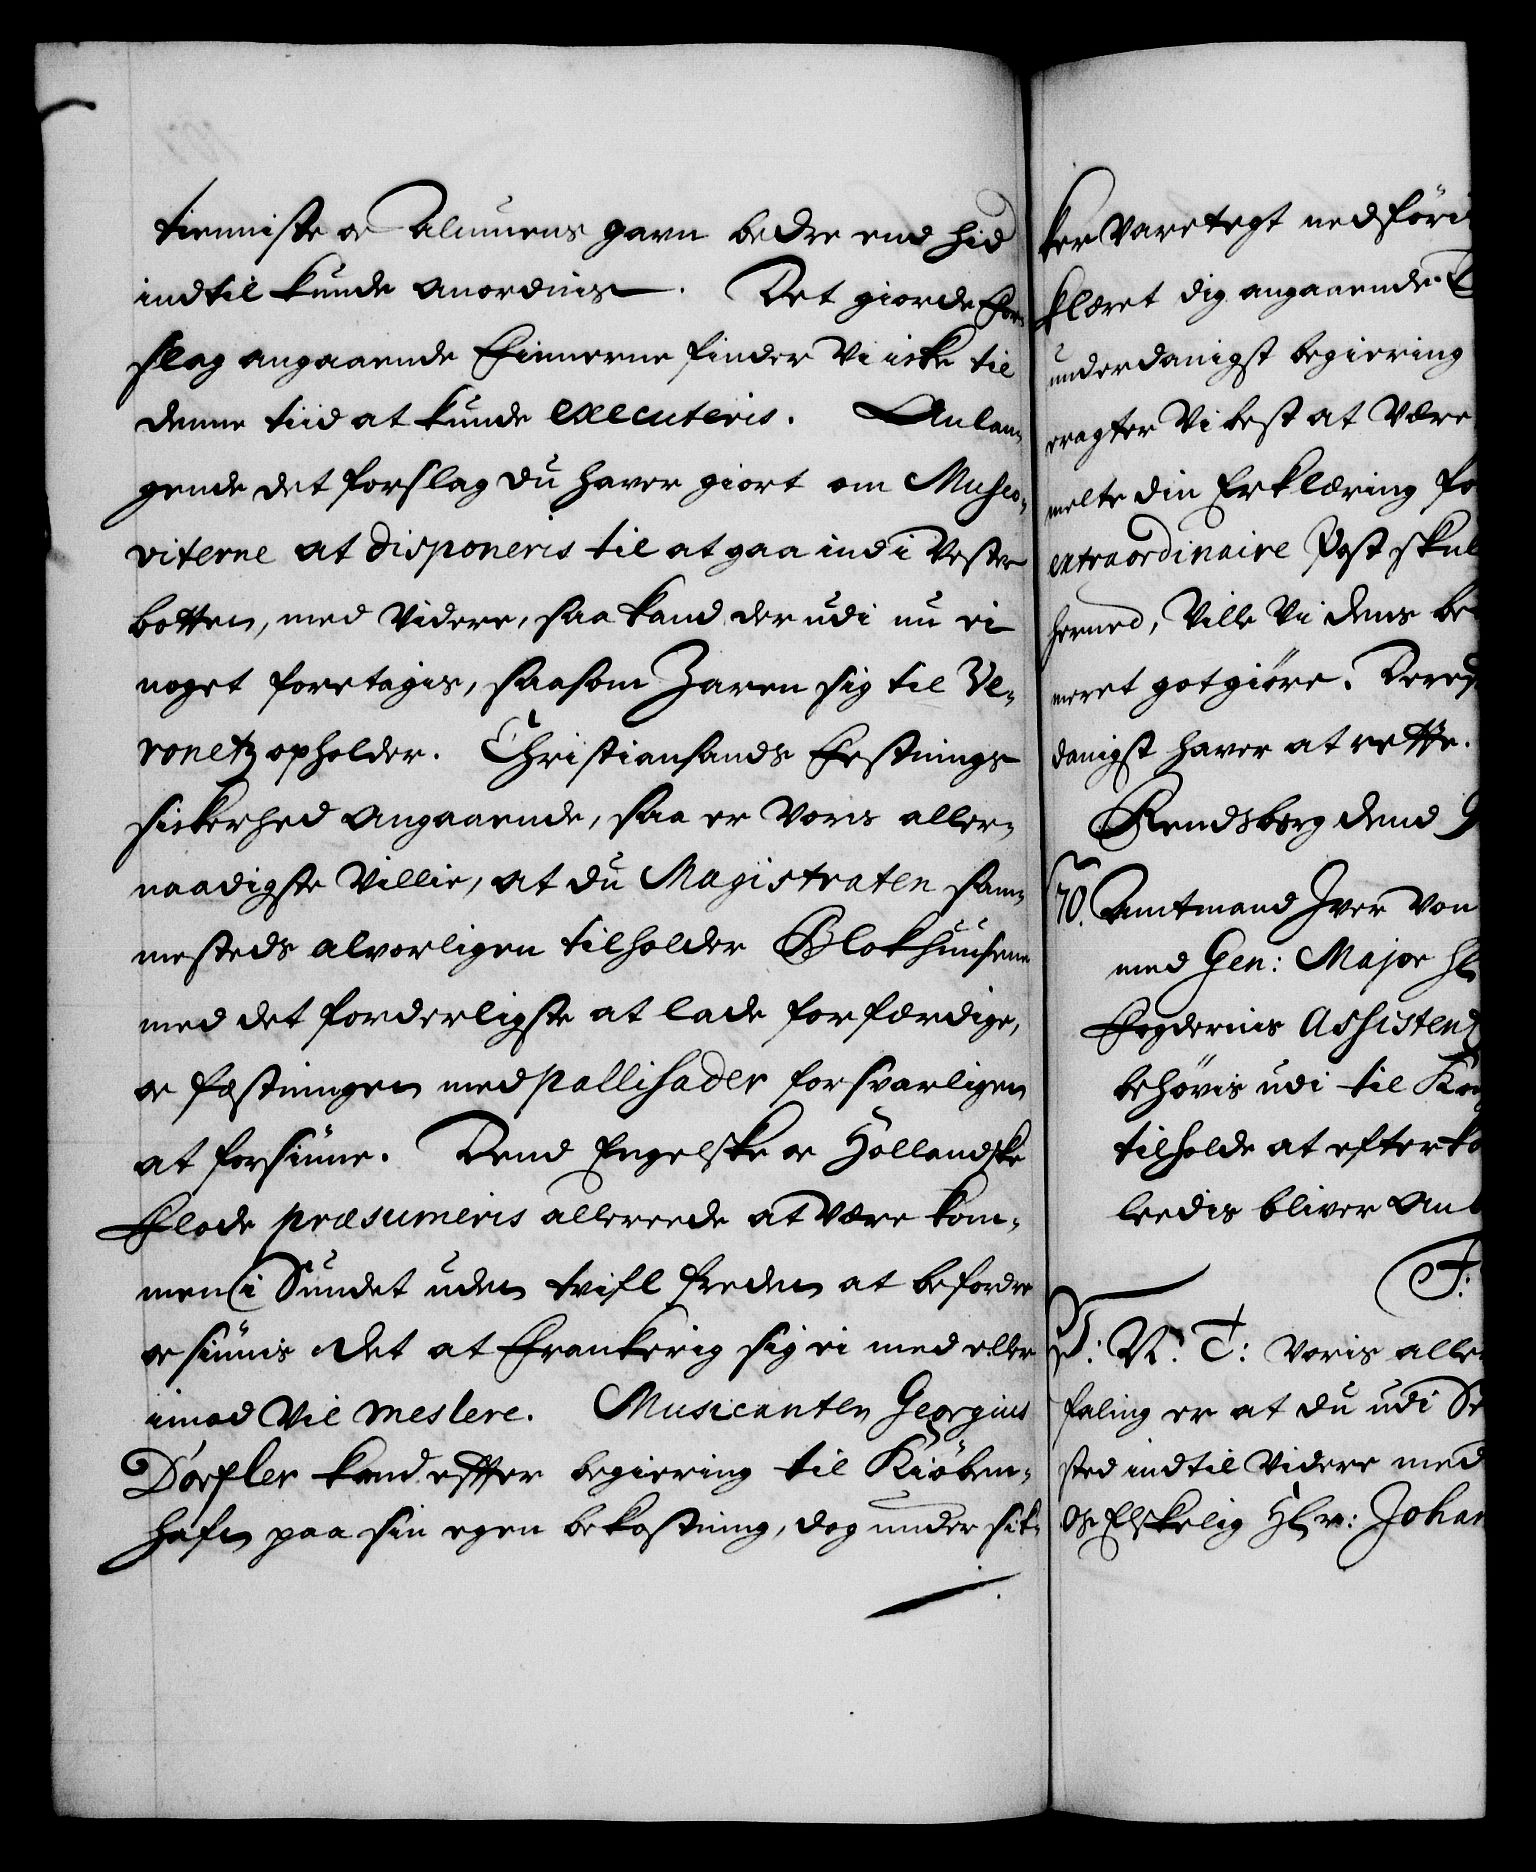 tienniste oc Almuens gavn bedre end hid
indtil kunde anordnis. Det giorde For¬
slag angaaende Finnerne finder Vi icke til
denne tiid at kunde executeris. Anlan¬
gende det forslag du haver giort om Musco¬
viterne at disponeris til at gaa ind i Vester
botten, med Videre, saa kand der udi nu ei
noget foretagis, saasom Zaren sig til Ve¬
ronetz opholder. Christiansands Festnings
sickerhed angaaende, saa er Voris aller¬
naadigste Villie, at du Magistraten sam¬
mesteds alvorligen tilholder Blokhuusene
med det forderligste at lade forfærdige,
oc festningen med pallisader forsvarligen
at forsiune. Dend Engelske oc Hollandske
Flode præsumeris allereede at være kom¬
men i Sundet uden tvifl freden at befordre
oc siunis det at Frankerig sig ei med eller
imod vil meslere. Musicanten Georgius
Dorfler kand effter begiering til Kiöben¬
hafn paa sin egen bekostning, dog under sik¬
ker Varetegt nedföri
klæret dig angaaende
underdanigst begiering
eragter Vi best at være
melte din Erklæring fo
extraordinaire Post skul
herned, Ville Vi dens be
meret gotgiöre. Dered
danigst haver at rette.
Rendsborg dend 9
70. Amtmand Iver Von
med Gen: Major Hr
Fogdernis Assistentz
behövis udi til Kong
tilholde at efterko
leedis bliver Ant
F:
P: V: T: Voris aller
faling er at du udi St
sted indtil Videre med
Os Elskelig Hr: Johan